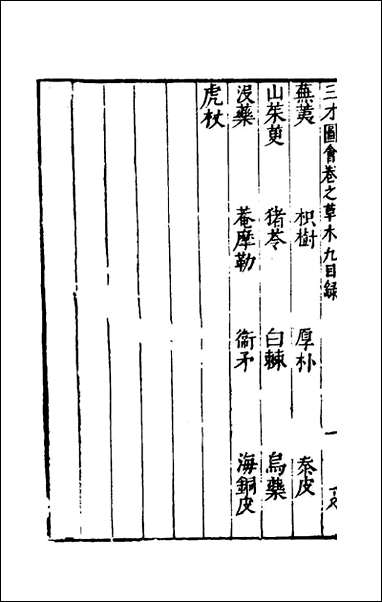 三才圖會卷之草木九目録 一
蕪荑 枳樹 厚朴 秦皮
山茱萸 猪苓 白棘 烏藥
沒藥 菴摩勒 衞矛 海銅皮
虎杖